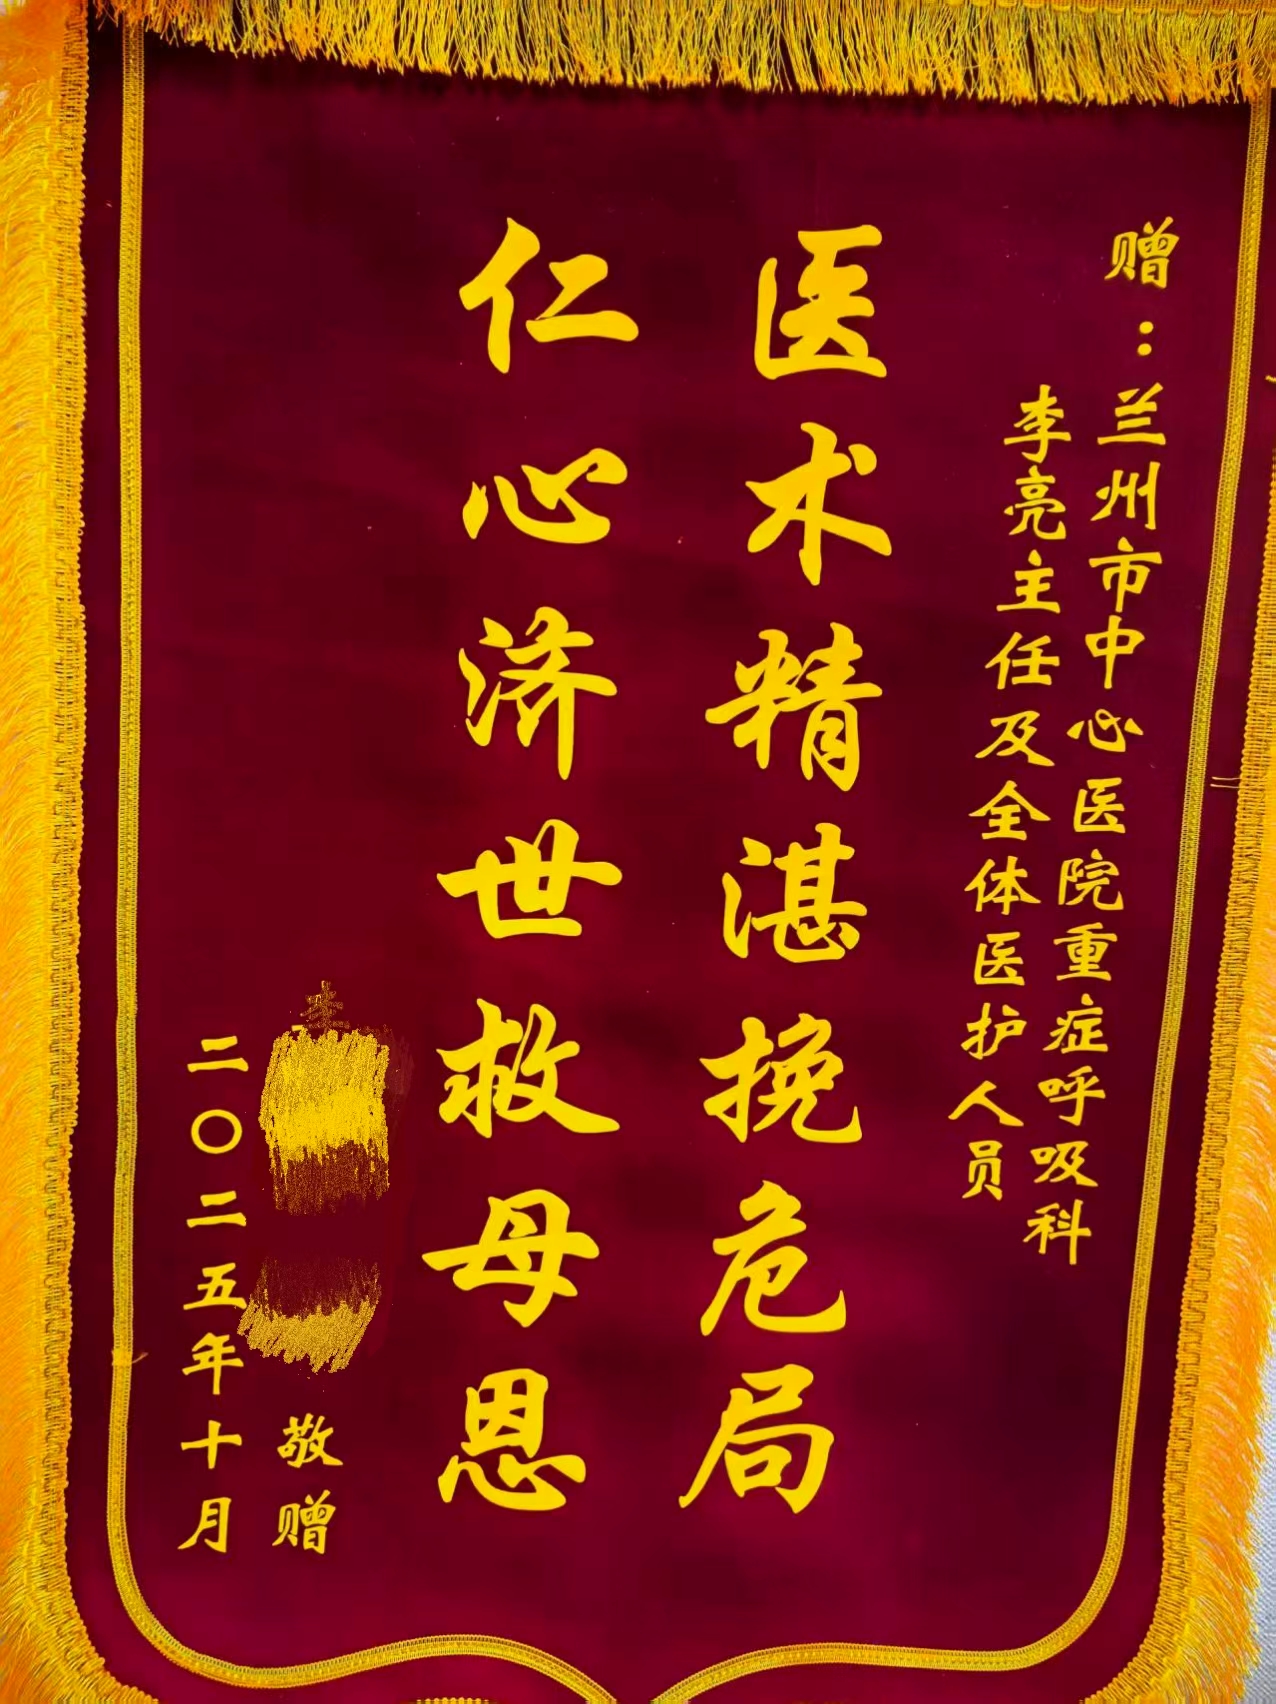 赠：兰州市中心医院重症呼吸科
李亮主任及全体医护人员
医术精湛挽危局
仁心济世救母恩
李
敬赠
二〇二五年十月